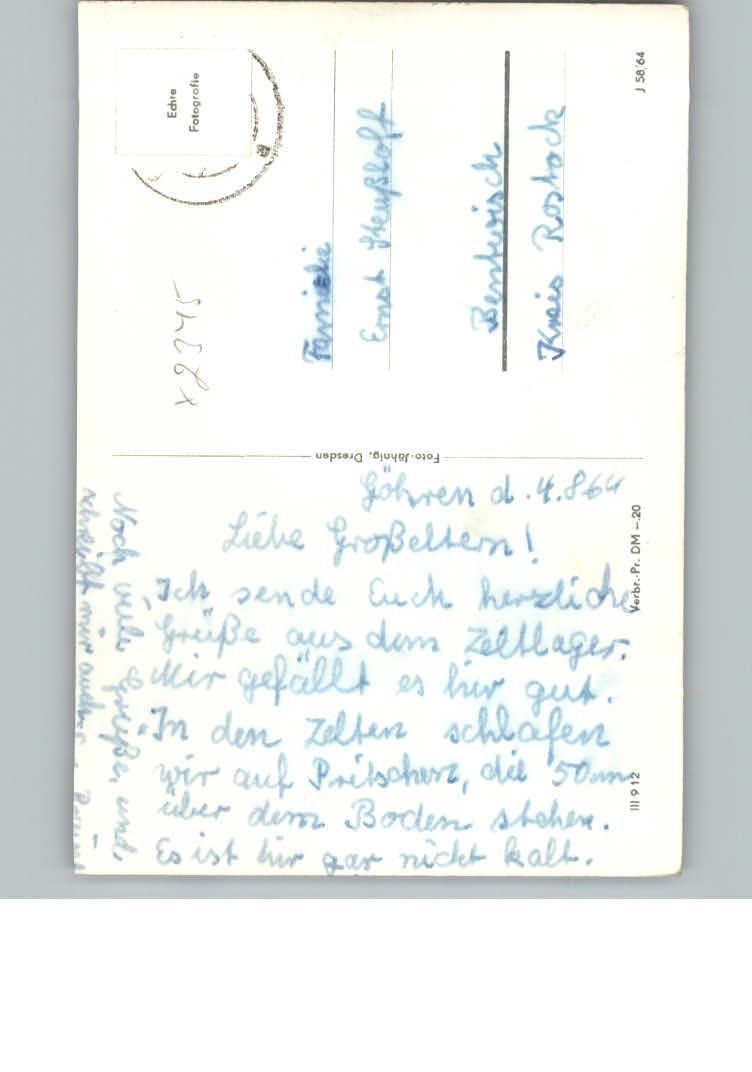 Göhren d. 4.8 64
Liebe Großeltern!
Ich sende Euch herzliche
Grüße aus dem Zeltlager.
Mir gefällt es hier gut.
In den Zelten schlafen
wir auf Pritschen, die 50 cm
über dem Boden stehen.
Es ist hir gar nicht kalt.
Noch viele Grüße und
schreibt mir
Foto-Jähnig, Dresden
Verbr.-Pr. DM –.20
III 9 12
Echte
Fotografie
x2345
Familie
Ernst
Bentwisch
Kreis Rostock
J 58/64